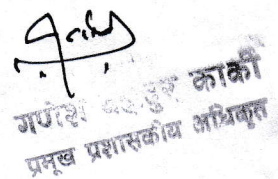 गणेश बहादुर कार्की
प्रमुख प्रशासकीय अधिकृत